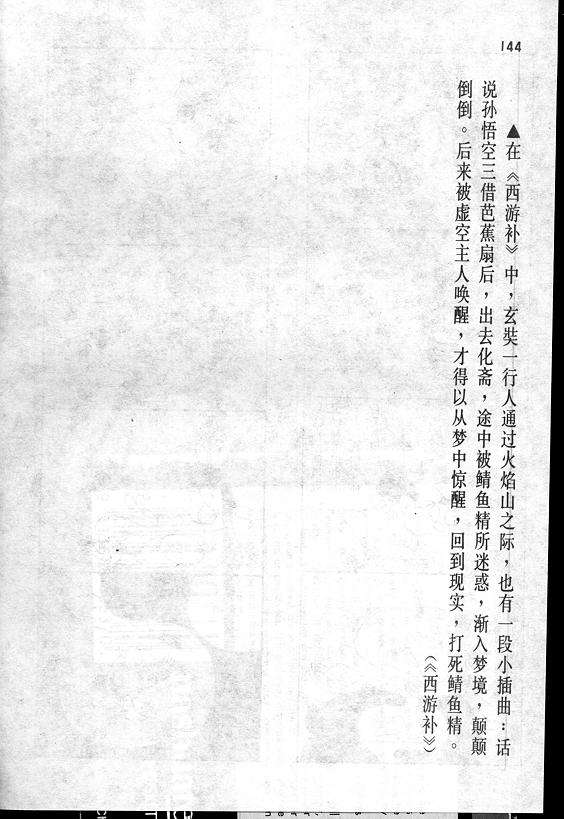 144
▲在《西游补》中，玄奘一行人通过火焰山之际，也有一段小插曲：话
说孙悟空三借芭蕉扇后，出去化斋，途中被鲭鱼精所迷惑，渐入梦境，颠颠
倒倒。后来被虚空主人唤醒，才得以从梦中惊醒，回到现实，打死鲭鱼精。
（《西游补》）